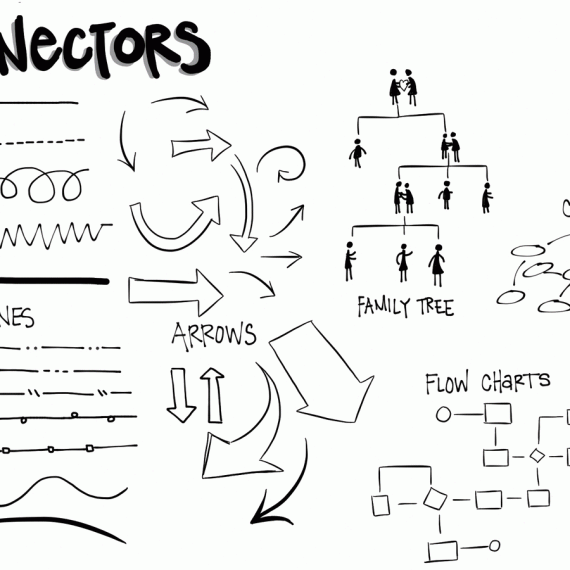 NECTORS
NES
ARROWS
FAMILY TREE
FLOW CHARTS
C